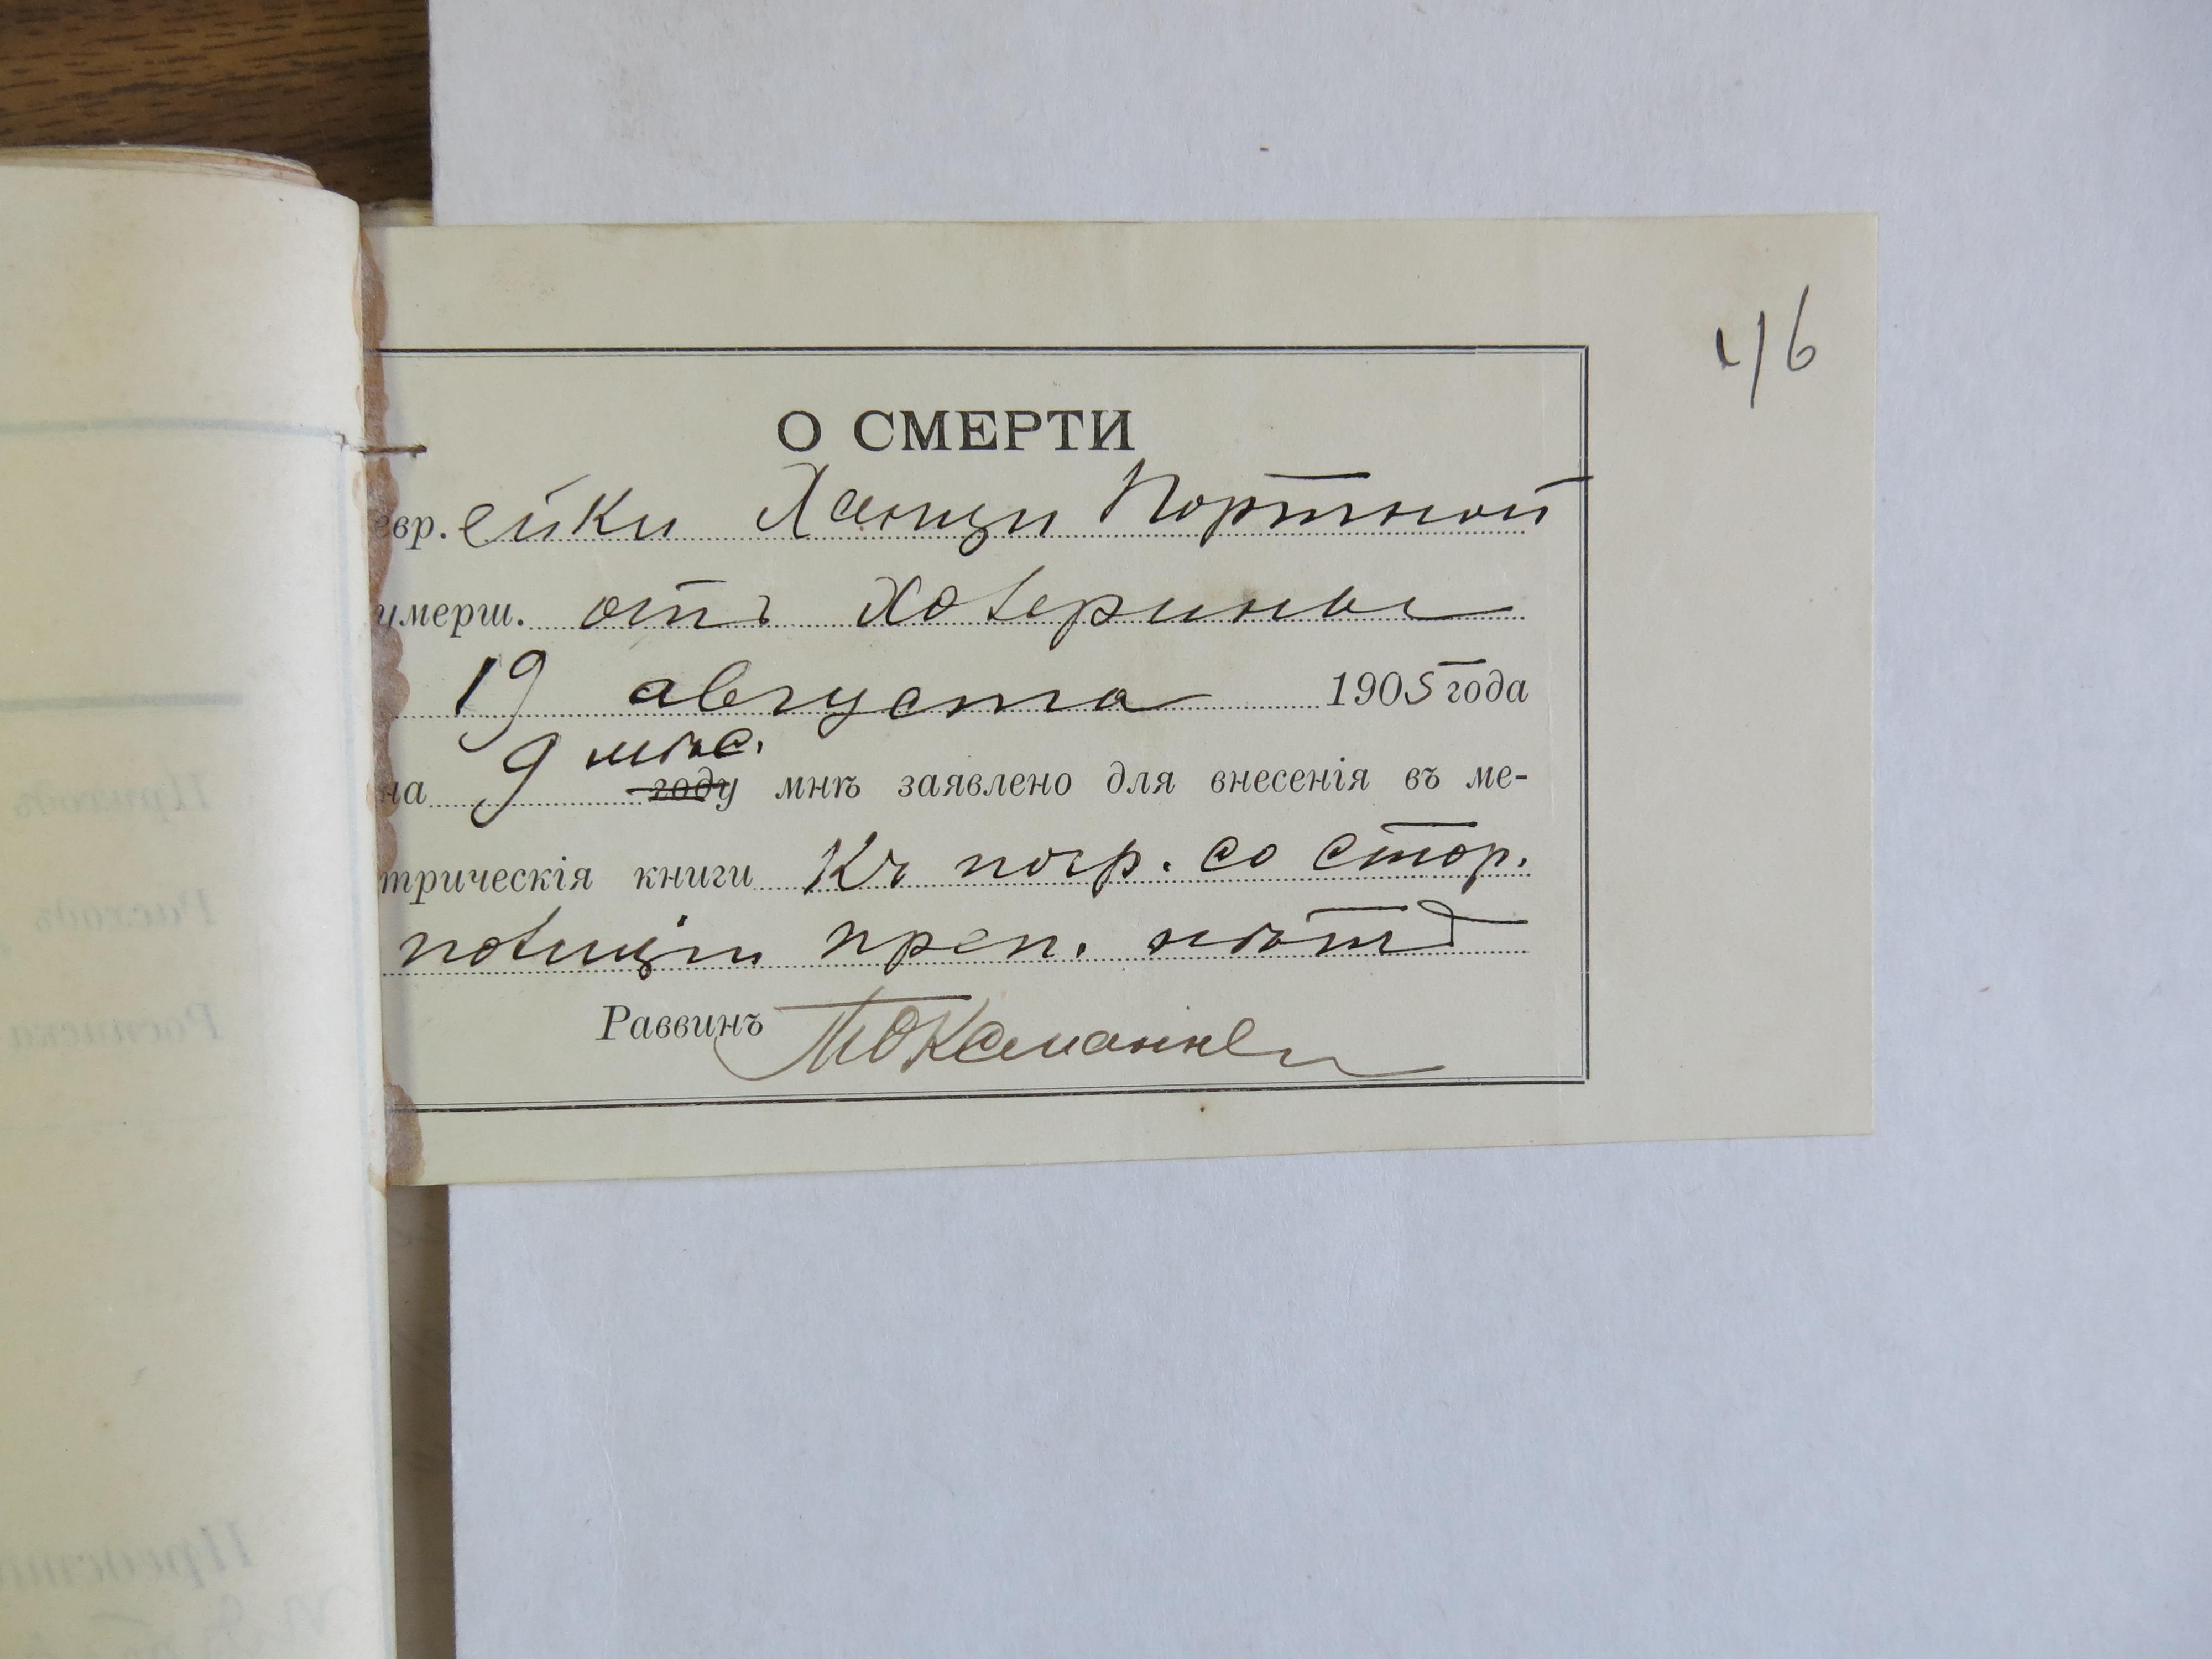 46
О СМЕРТИ
евр. ейки Ханци Портной
умерш. отъ холерины
19 августа 1905 года
на 9 мѣс. году мнѣ заявлено для внесенія въ ме-
трическія книги Къ погр. со стор.
полиціи преп. нѣтъ
Раввинъ